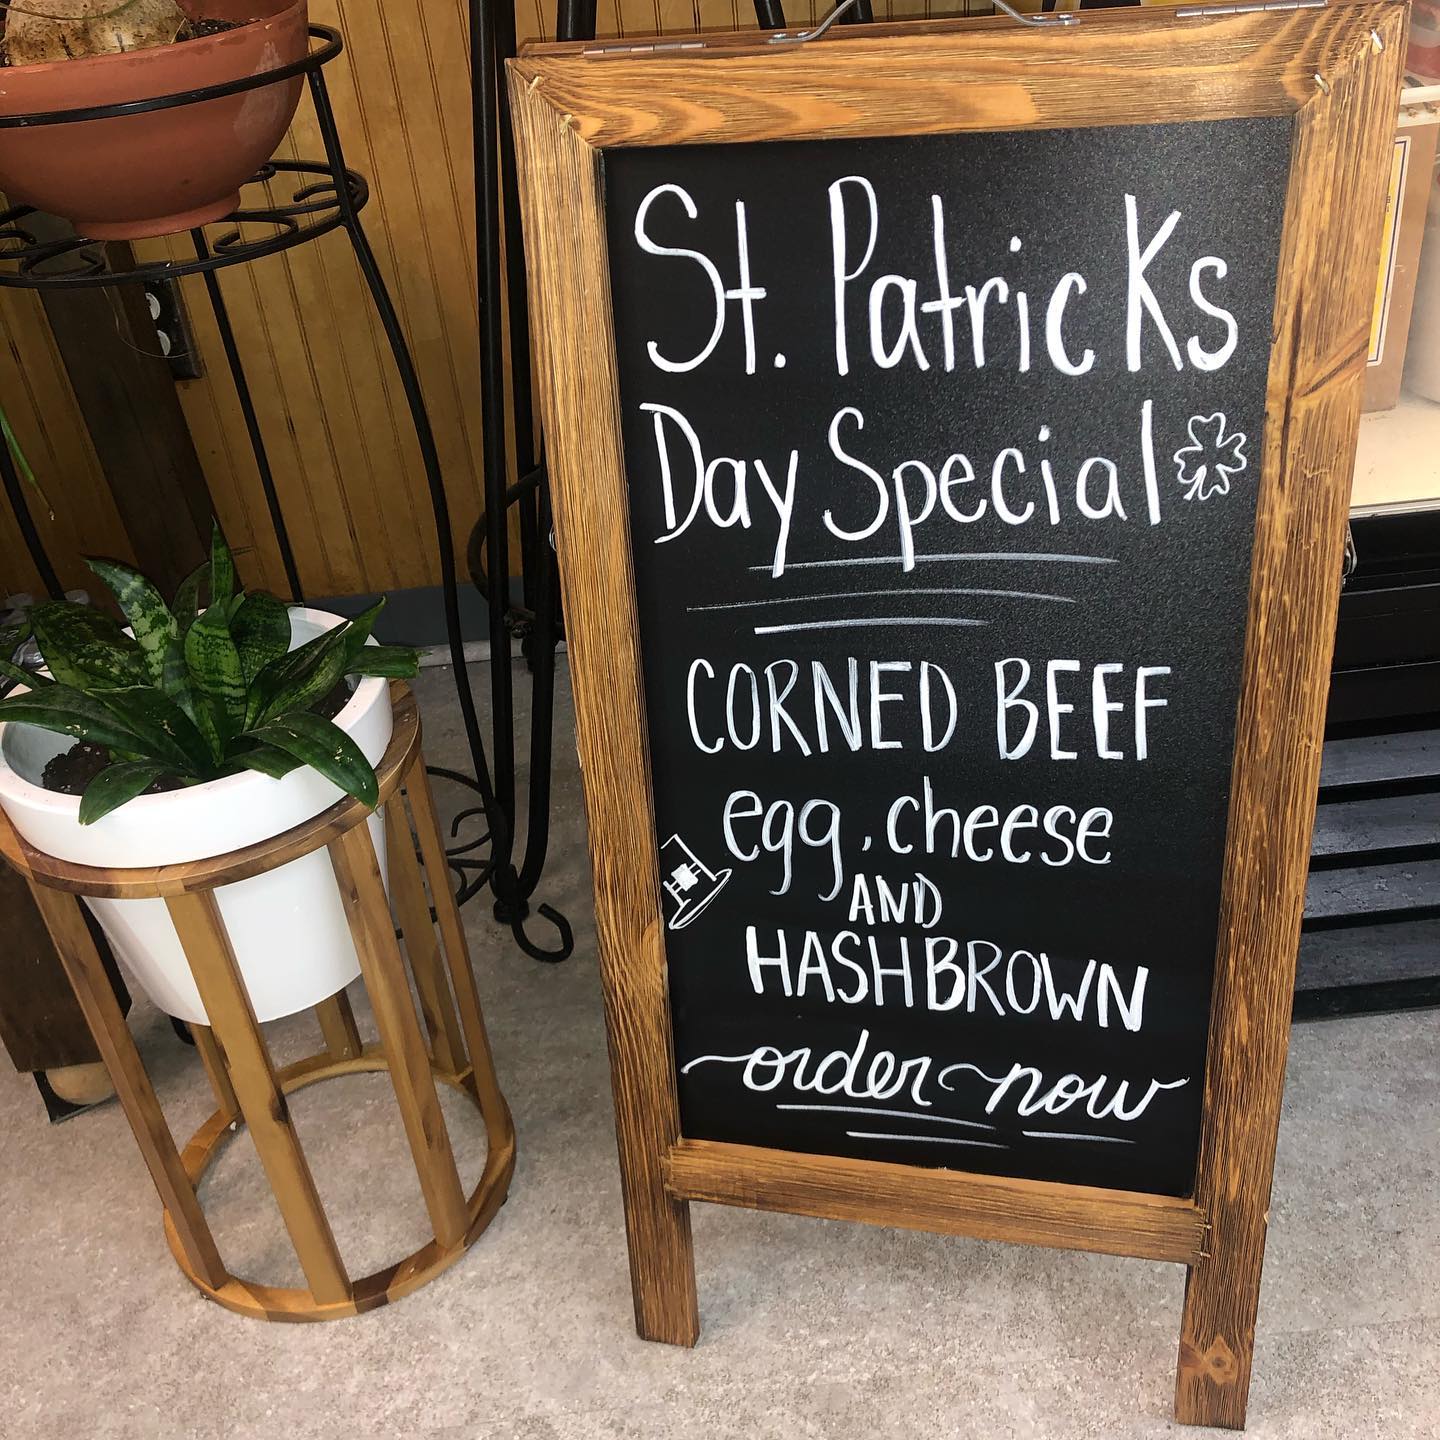 St. Patricks
Day Special
CORNED BEEF
egg, cheese
AND
HASHBROWN
order now